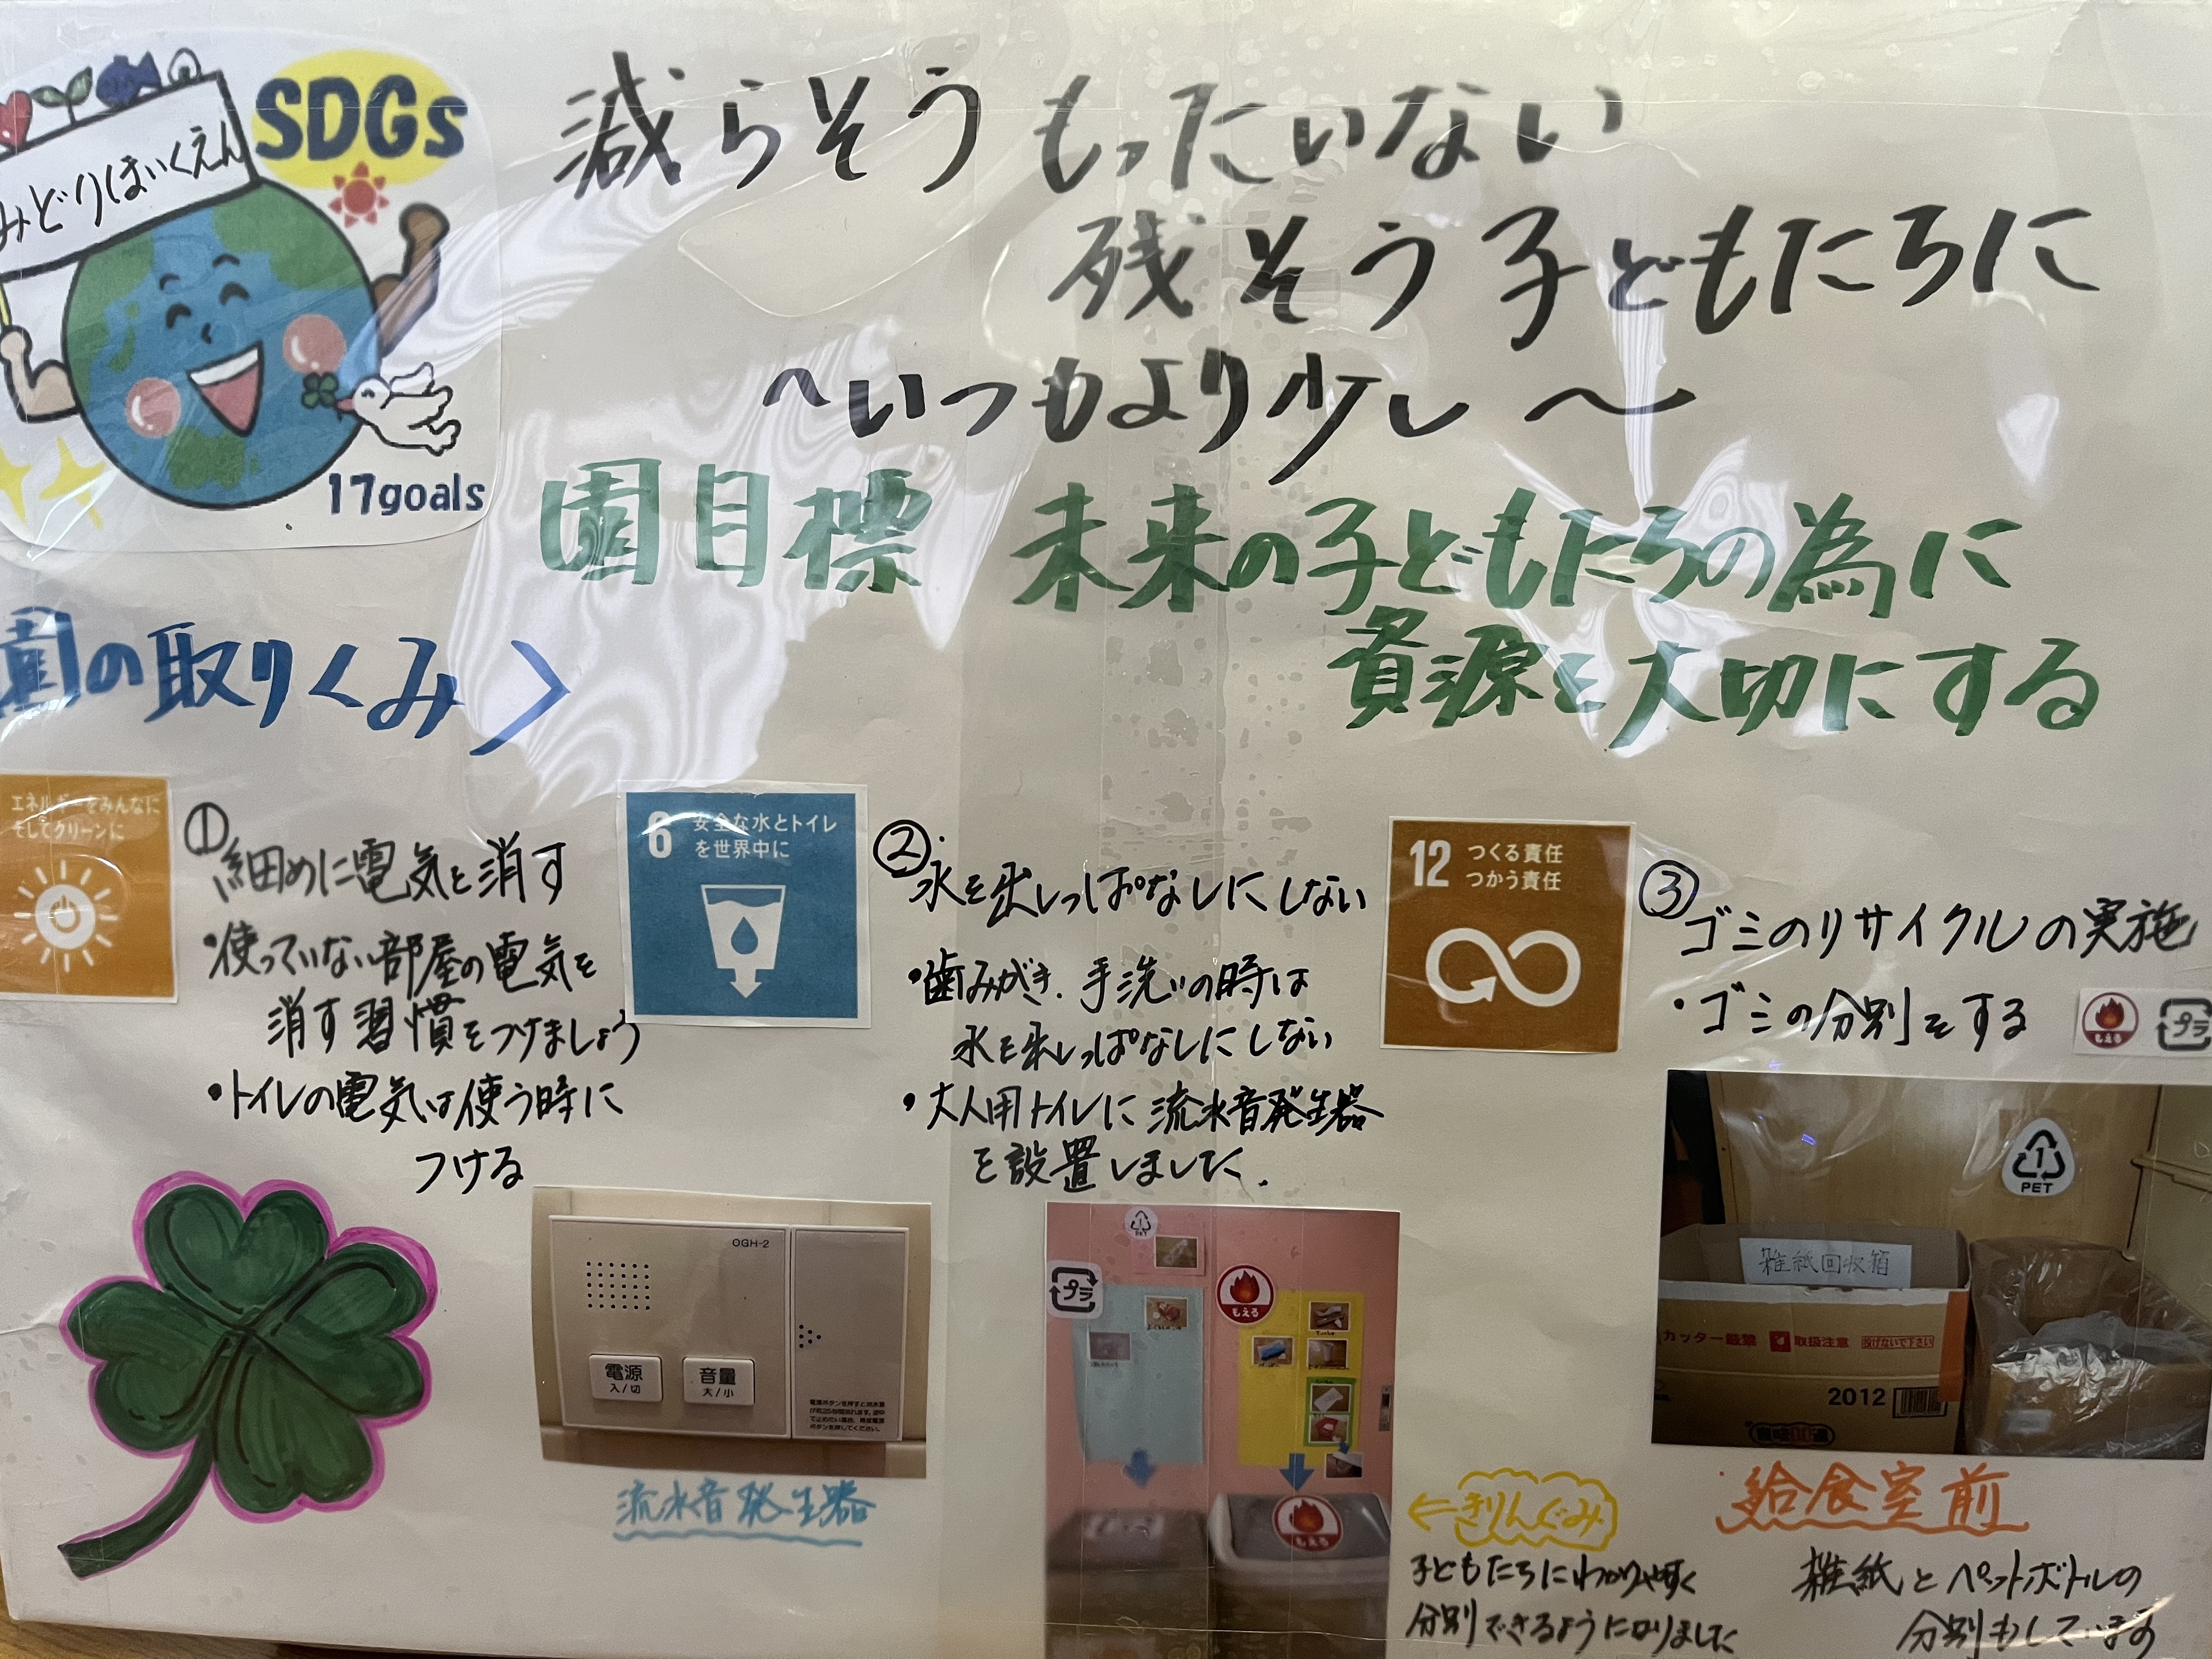 SDGs
みどりほいくえん
17goals
減らそう もったいない
残そう 子どもたちに
~いつもより少し~
園目標 未来の子どもたちの為に
資源を大切にする
園の取りくみ>
エネルギーをみんなに
そしてクリーンに
①細めに電気を消す
・使っていない部屋の電気を
消す習慣をつけましょう
・トイレの電気は使う時に
つける
6 安全な水とトイレ
を世界中に
②水を出しっぱなしにしない
・歯みがき、手洗いの時は
水を出しっぱなしにしない
・大人用トイレに流水音発生器
を設置しました.
12 つくる責任
つかう責任
③ゴミのリサイクルの実施
・ゴミの分別をする
もえる
プラ
OGH-2
電源
入/切
音量
大/小
電源ボタンを押すと流水音
が約25秒間流れます。途中
で止めたい場合、再度電源
ボタンを押してください。
流水音発生器
1
PET
プラ
もえる
もえる
←きりんぐみ
子どもたちにわかりやすく
分別できるようになりました
1
PET
雑紙回収箱
カッター厳禁 取扱注意 投げないで下さい
2012
給食室前
雑紙とペットボトルの
分別もしています